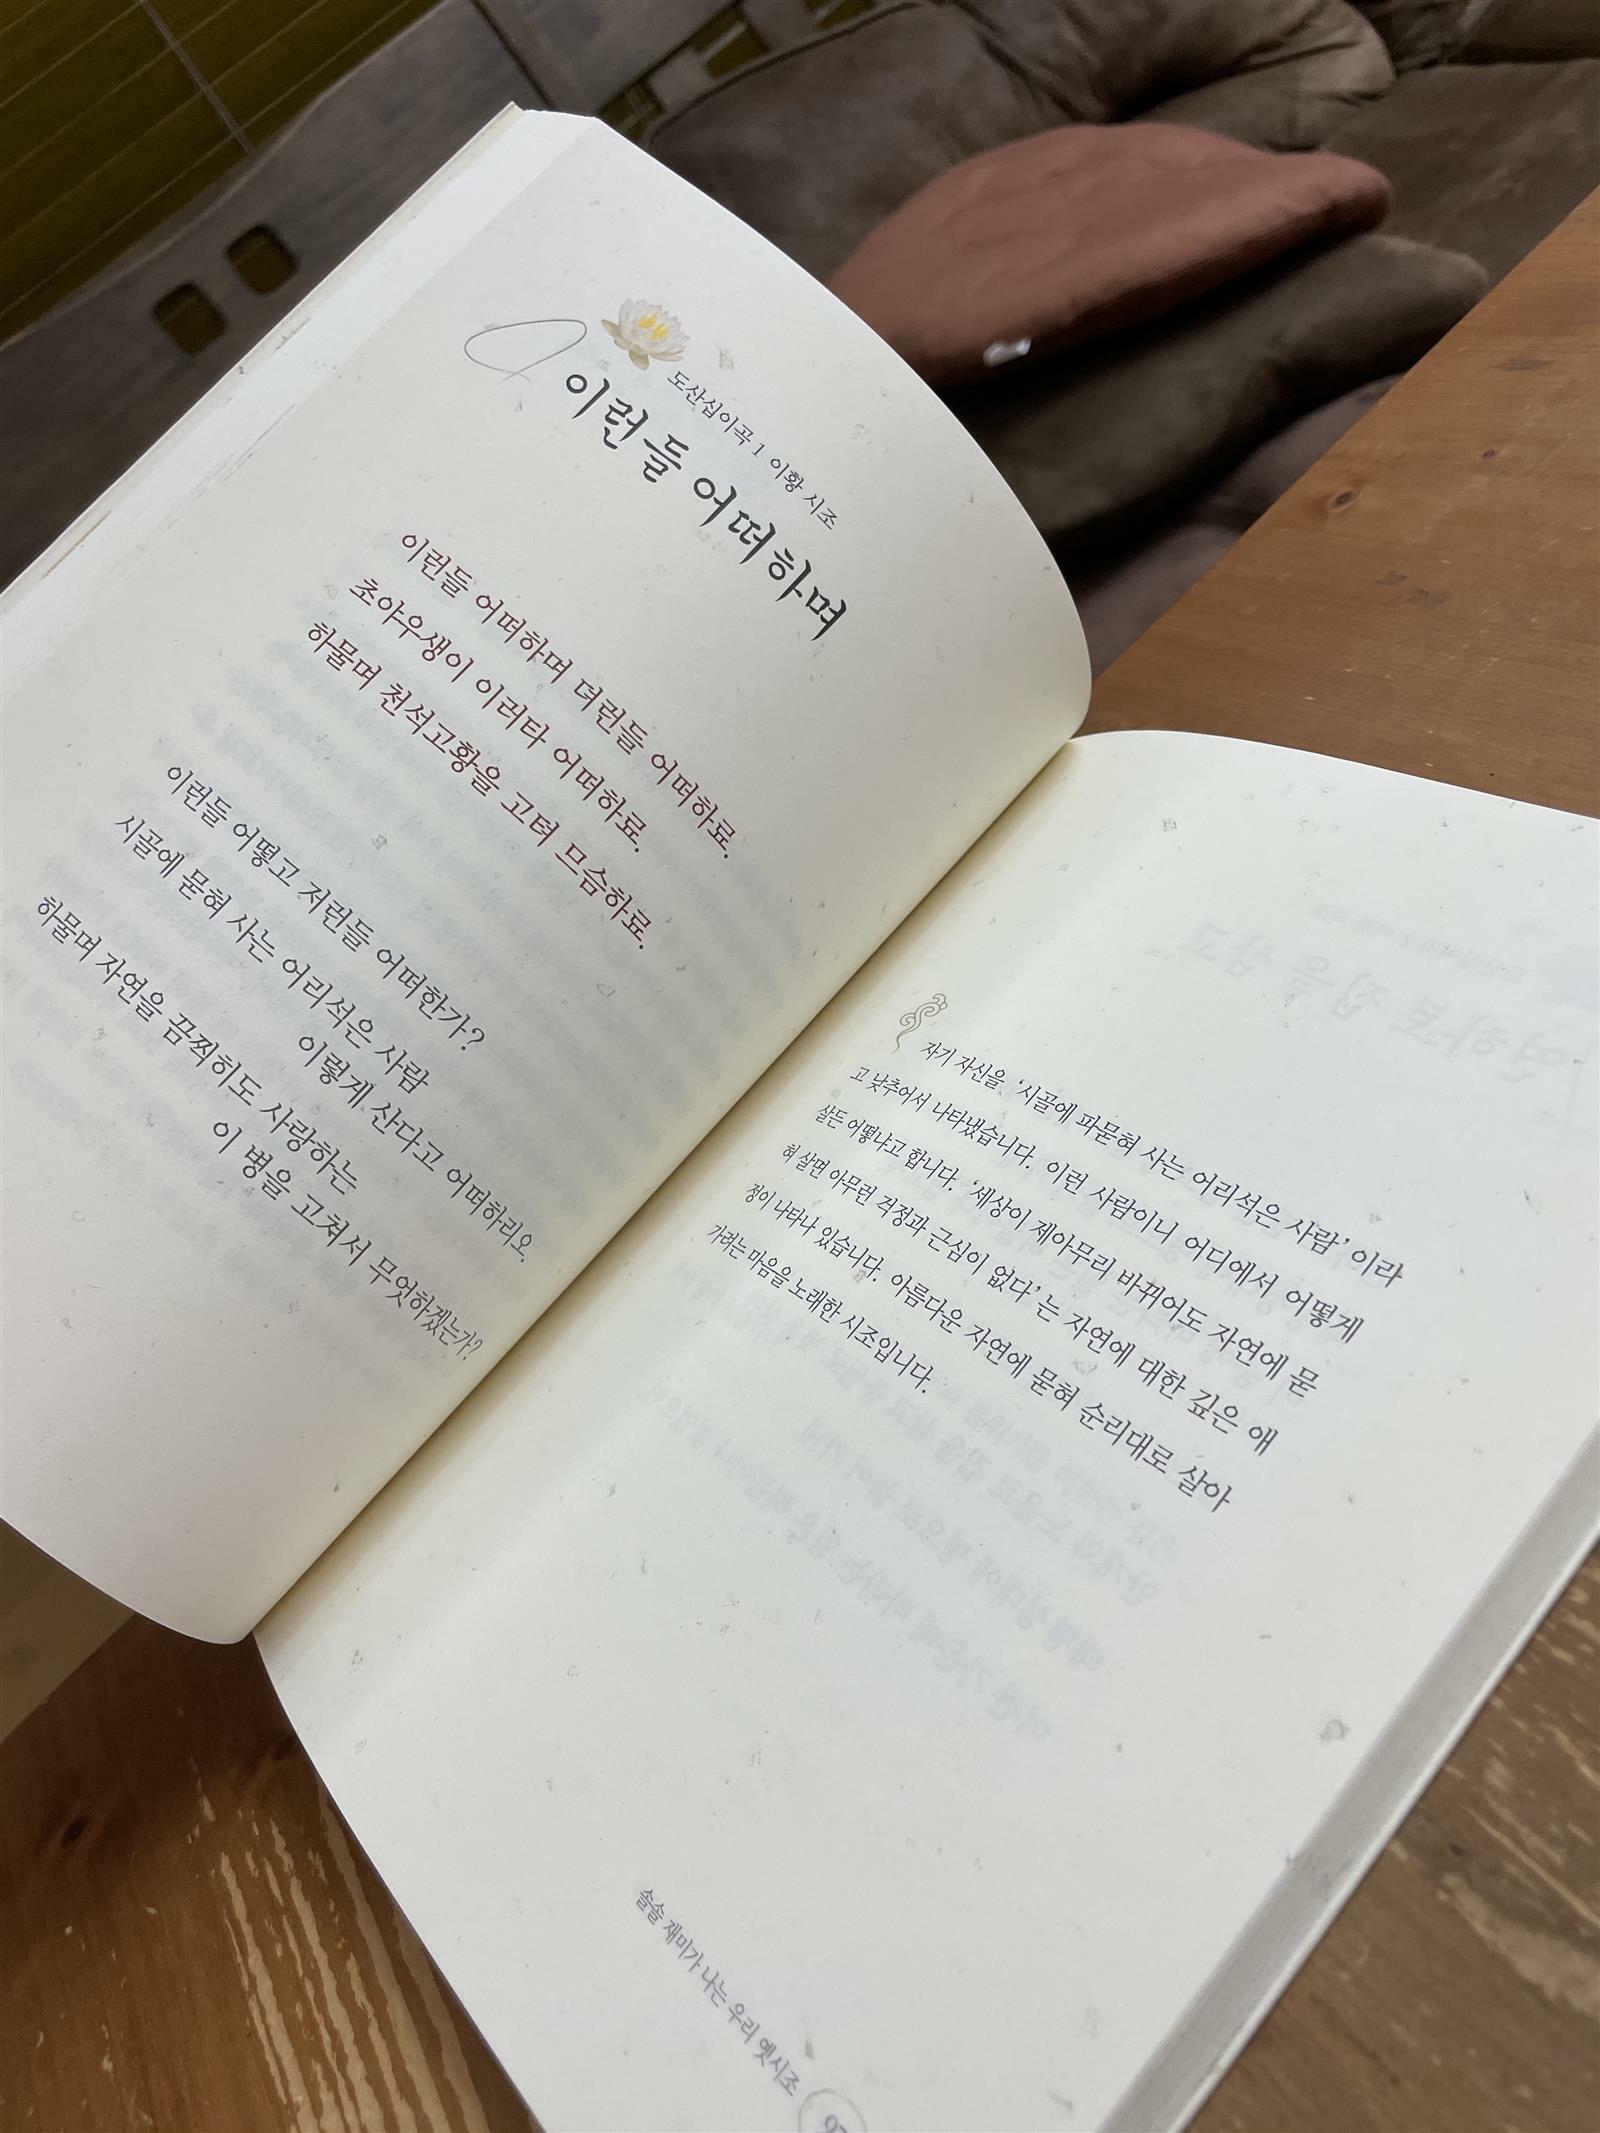 도산십이곡 1 이황 시조
이런들 어떠하며
이런들 어떠하며 뎌런들 어떠하료.
초야우생이 이러타 어떠하료.
하물며 천석고황을 고텨 므슴하료.
이런들 어떻고 저런들 어떠한가?
시골에 묻혀 사는 어리석은 사람
이렇게 산다고 어떠하리오.
하물며 자연을 끔찍히도 사랑하는
이 병을 고쳐서 무엇하겠는가?
자기 자신을 '시골에 파묻혀 사는 어리석은 사람'이라
고 낮추어서 나타냈습니다. 이런 사람이니 어디에서 어떻게
살든 어떻냐고 합니다. '세상이 제아무리 바뀌어도 자연에 묻
혀 살면 아무런 걱정과 근심이 없다'는 자연에 대한 깊은 애
정이 나타나 있습니다. 아름다운 자연에 묻혀 순리대로 살아
가려는 마음을 노래한 시조입니다.
솔솔 재미가 나는 우리 옛시조